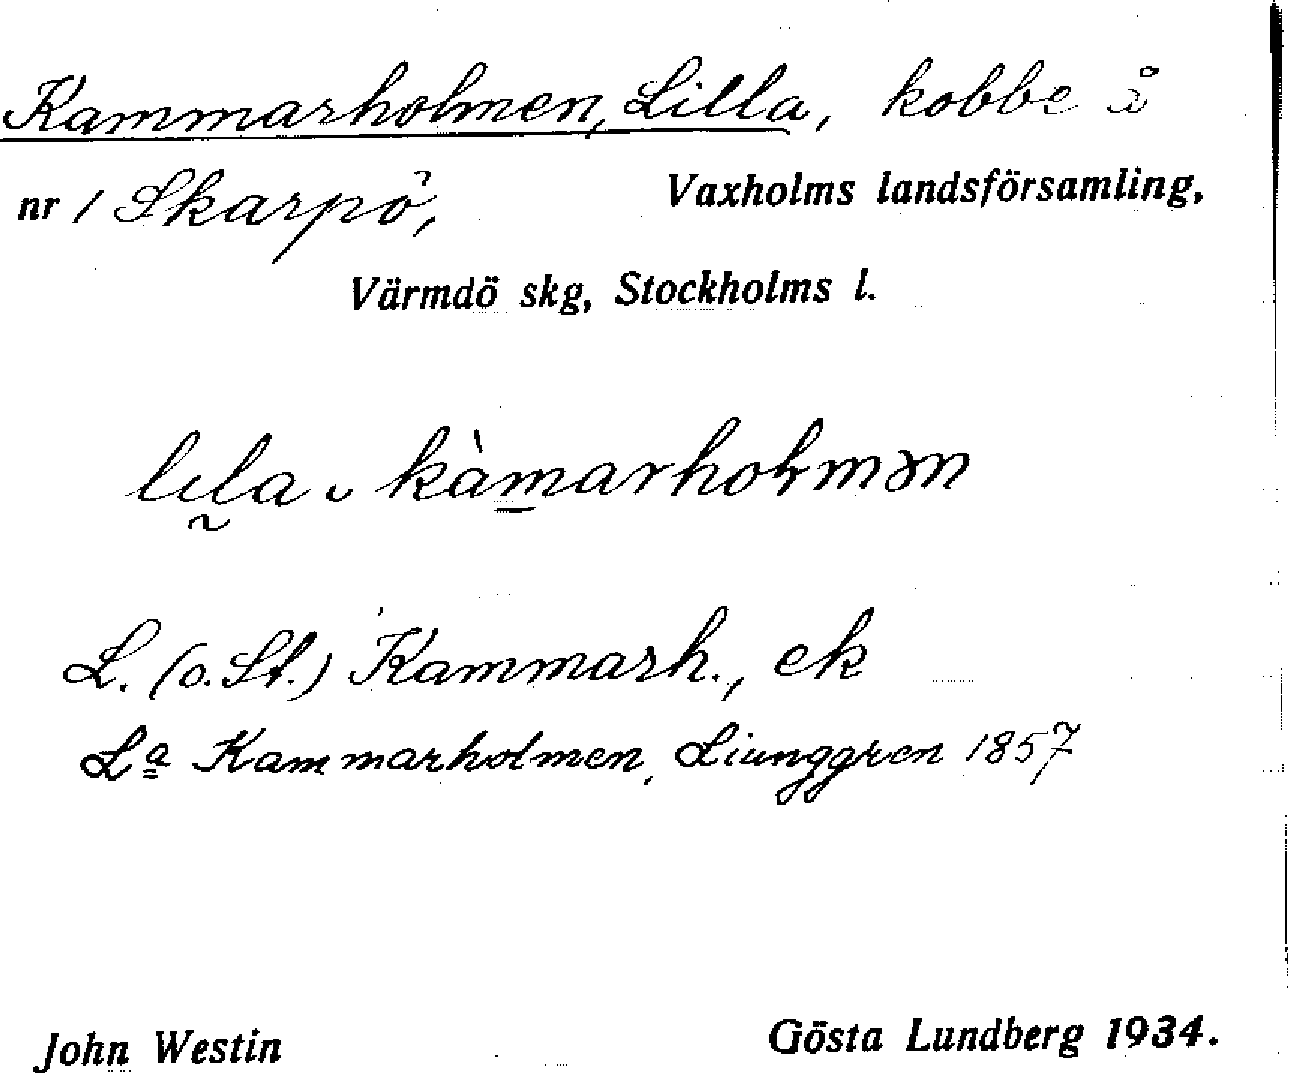 Kammarholmen, Lilla, kobbe å
nr 1 Skarpö, Vaxholms landsförsamling,
Värmdö skg, Stockholms l.
lıla ᴗ kàmarhoɬmən
L. (o. St.) Kammarh., ek
La Kammarholmen, Ljunggren 1857
John Westin Gösta Lundberg 1934.